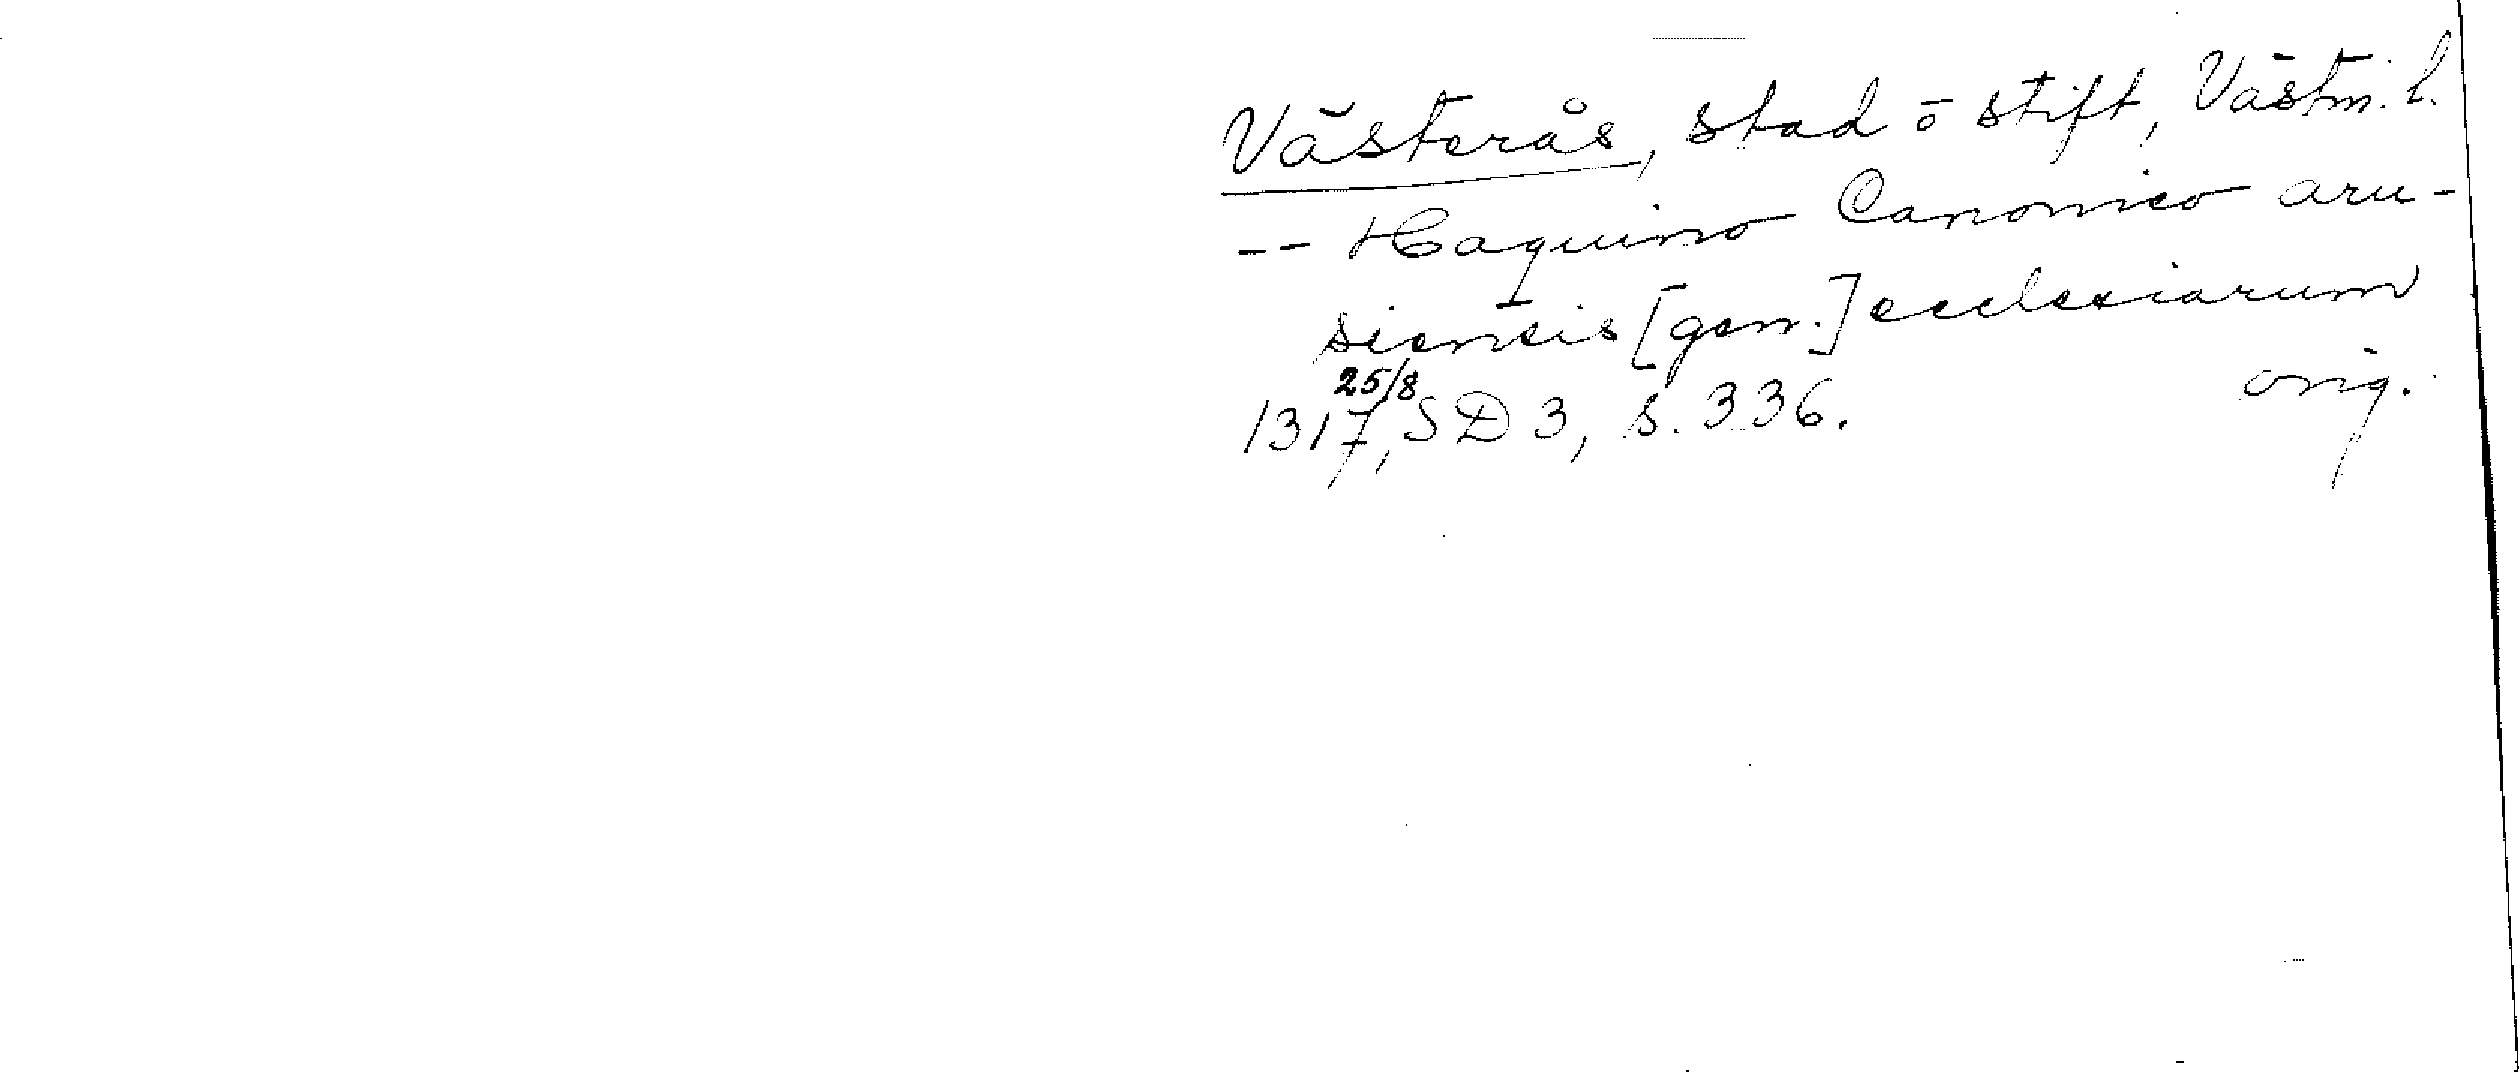 Västerås, stad ō stift, Västm. l.
-- Haquino Canonico aru-
siensis [gen.] ecclesiarum
1317 25/8, SD 3, s. 336. orig.